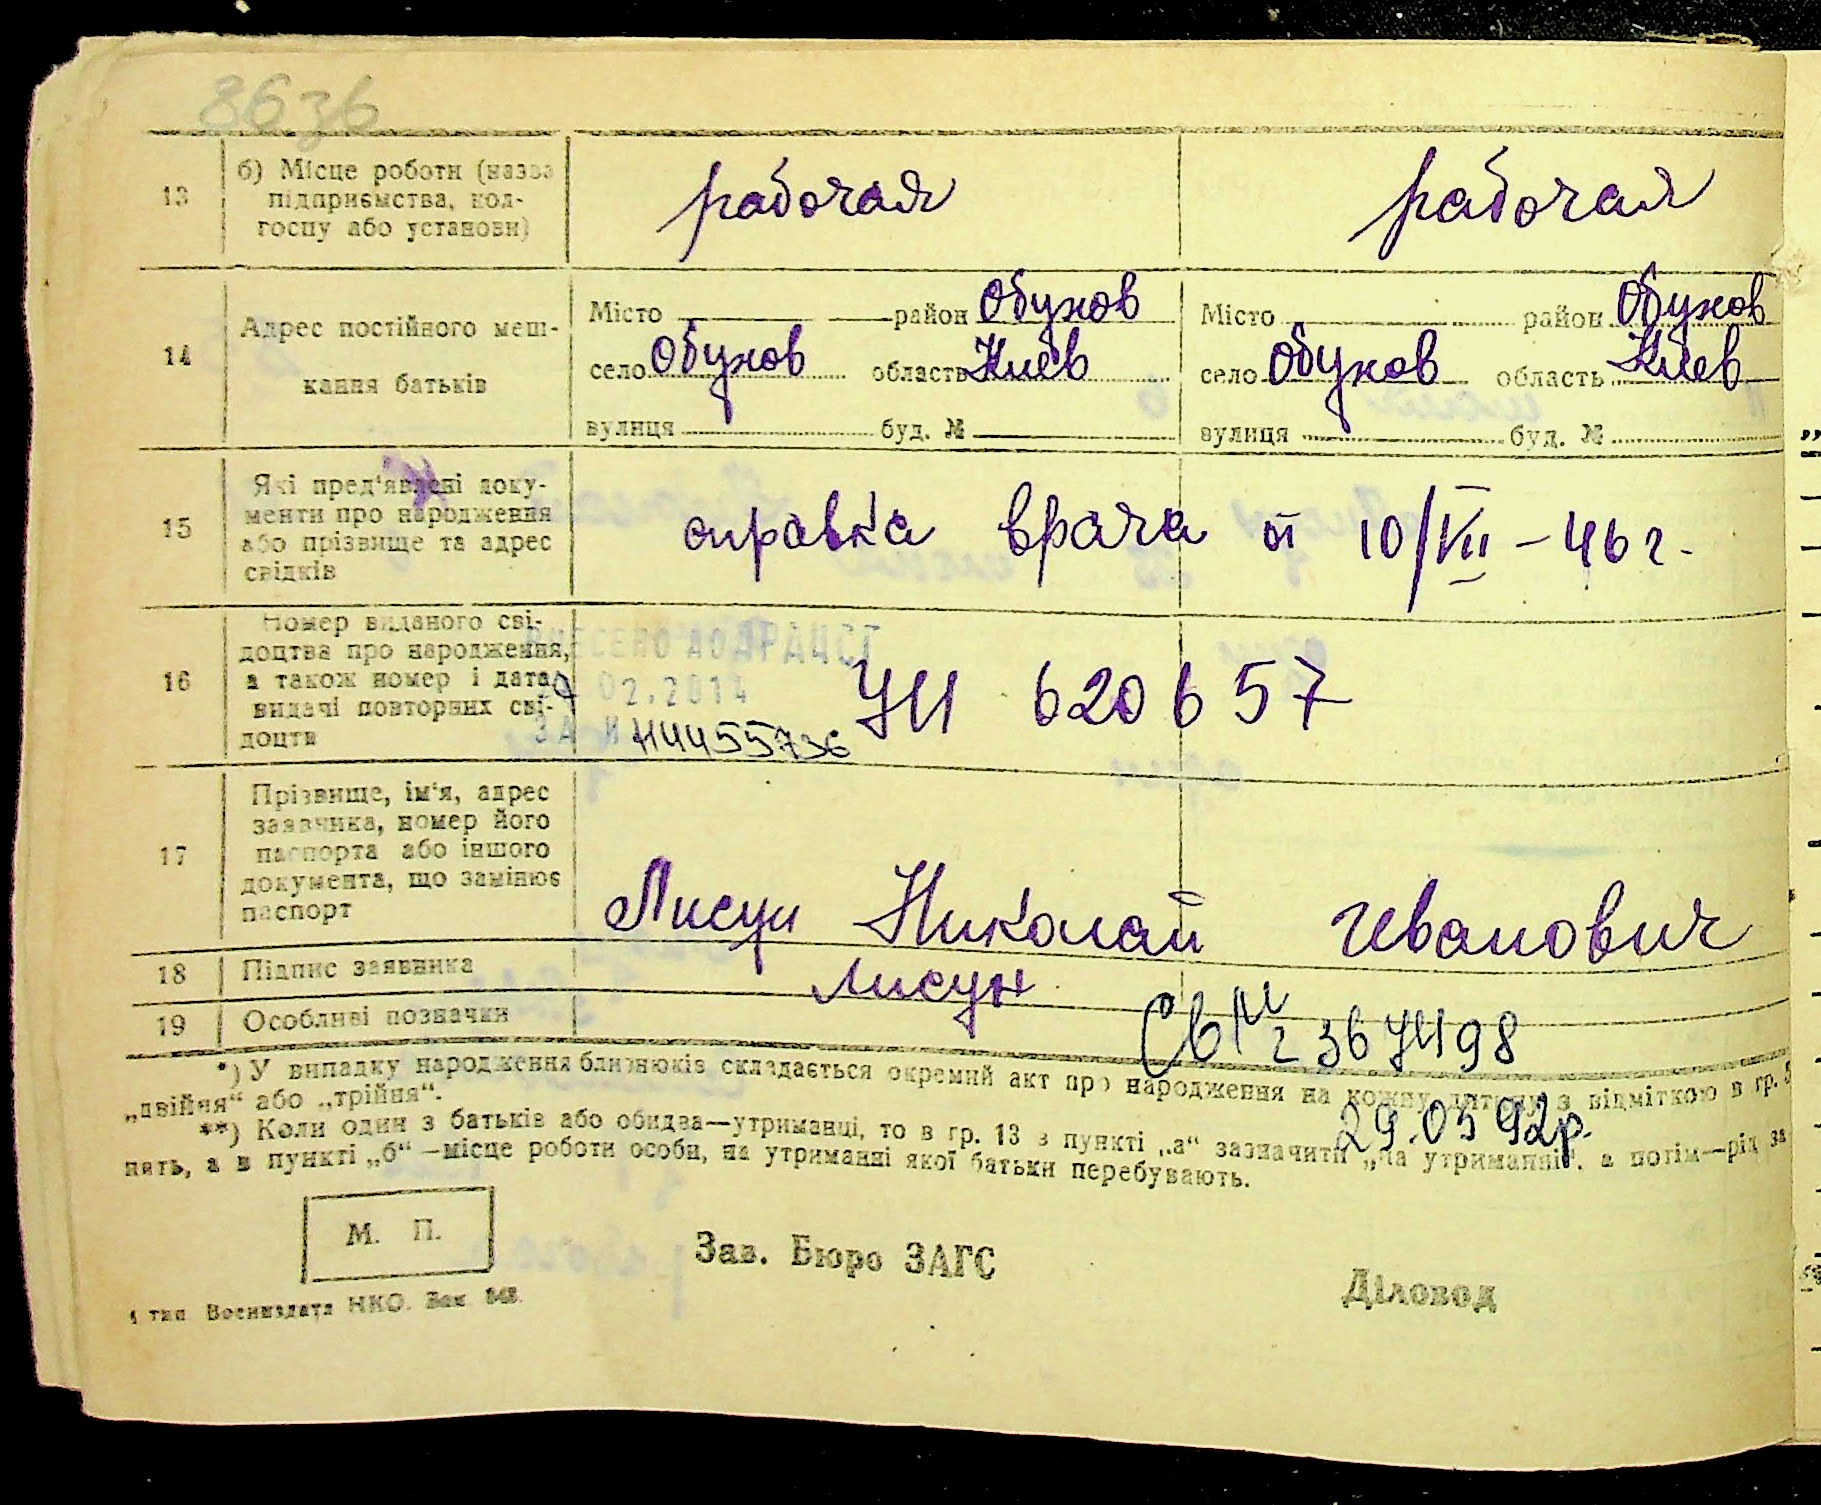 86 зв
13
б) Місце роботи (назва
підприємства, кол-
госпу або установи)
рабочая
рабочая
14
Адрес постійного меш-
кання батьків
Місто район Обухов
село Обухов область Киев
вулиця буд. №
Місто район Обухов
село Обухов область Киев
вулиця буд. №
15
Які пред'явлені доку-
менти про народження
або прізвище та адрес
свідків
справка врача от 10/VII – 46 г.
16
Номер виданого сві-
доцтва про народження,
а також номер і дата
видачі повторних сві-
доцтв
ВНЕСЕНО ДО ДРАЦСГ
02.2014
ЗА №
УЦ 620657
17
Прізвище, ім'я, адрес
заявника, номер його
паспорта або іншого
документа, що замінює
паспорт
Лисун Николай Иванович
18
Підпис заявника
Лисун
19
Особливі позначки
*) У випадку народження близнюків складається окремий акт про народження на кожну дитину з відміткою в гр. 5
„двійня“ або „трійня“.
29.05 92р.
**) Коли один з батьків або обидва—утриманці, то в гр. 13 в пункті „а“ зазначити „на утриманні“, а потім—рід за
нять, а в пункті „б“ —місце роботи особи, на утриманні якої батьки перебувають.
М. П.
Зав. Бюро ЗАГС
Діловод
1 тип Воениздата НКО. Зак